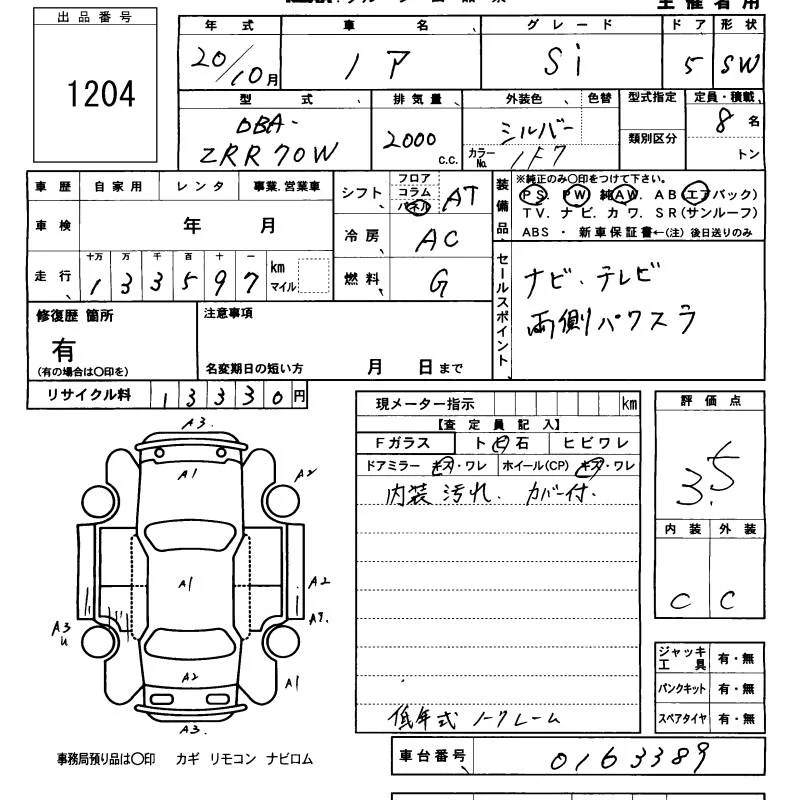 主催者用
出品番号
1204
年式 車名 グレード ドア 形状
20/10月 ノア Si 5 SW
型式 排気量 外装色 色替 型式指定 定員・積載
DBA-
ZRR70W
2000 C.C.
シルバー
カラーNo. 1F7
類別区分
8名
トン
車歴 自家用 レンタ 事業.営業車
車検 年 月
走行 十万 万 千 百 十 一
133597 km マイル
シフト フロア コラム パネル AT
冷房 AC
燃料 G
装備品
※純正のみ〇印をつけて下さい。
PS. PW 純AW. AB(エアバック)
TV. ナビ. カワ. SR(サンルーフ)
ABS ・ 新車保証書←(注) 後日送りのみ
セールスポイント
ナビ、テレビ
両側パワスラ
修復歴 箇所
有
(有の場合は〇印を)
注意事項
名変期日の短い方 月 日まで
リサイクル料 13330円
現メーター指示 km
【査定員記入】
Fガラス トビ石 ヒビワレ
ドアミラー キズ・ワレ ホイール(CP) キズ・ワレ
内装汚れ、カバー付.
低年式 ノークレーム
評価点
3.5
内装 外装
C C
ジャッキ工具 有・無
パンクキット 有・無
スペアタイヤ 有・無
A3.
A1
A2
A1
A2
A3
U
A2
A1
A3.
事務局預り品は〇印 カギ リモコン ナビロム
車台番号 0163389